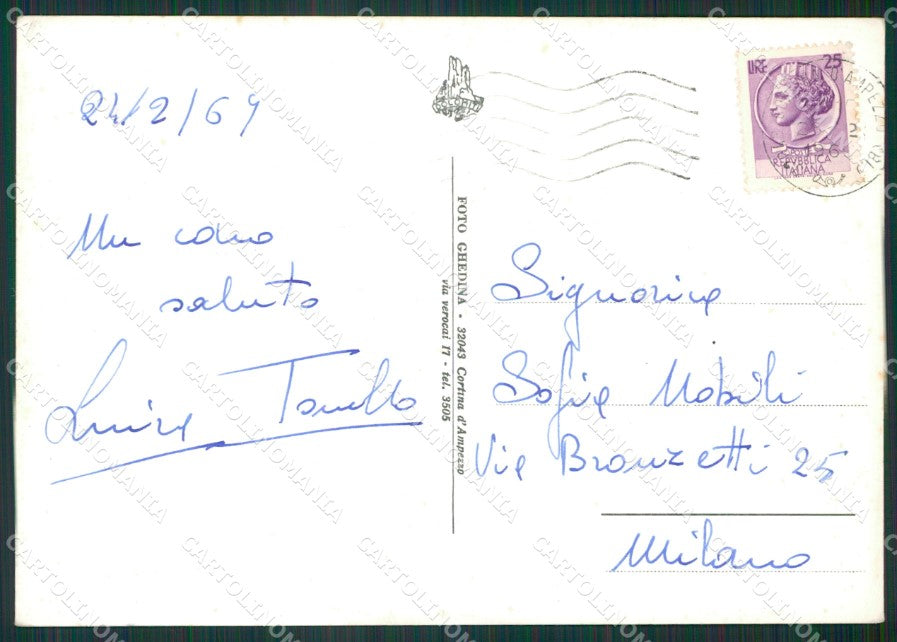 24/2/69
Un caro
saluto
Luisa
FOTO GHEDINA - 32043 Cortina d'Ampezzo
via verocai 17 - tel. 3505
LIRE 25
REPVBBLICA
ITALIANA
Signorina
Sofia Nobili
Via Bronzetti 25
Milano
CARTOLINOMANIA